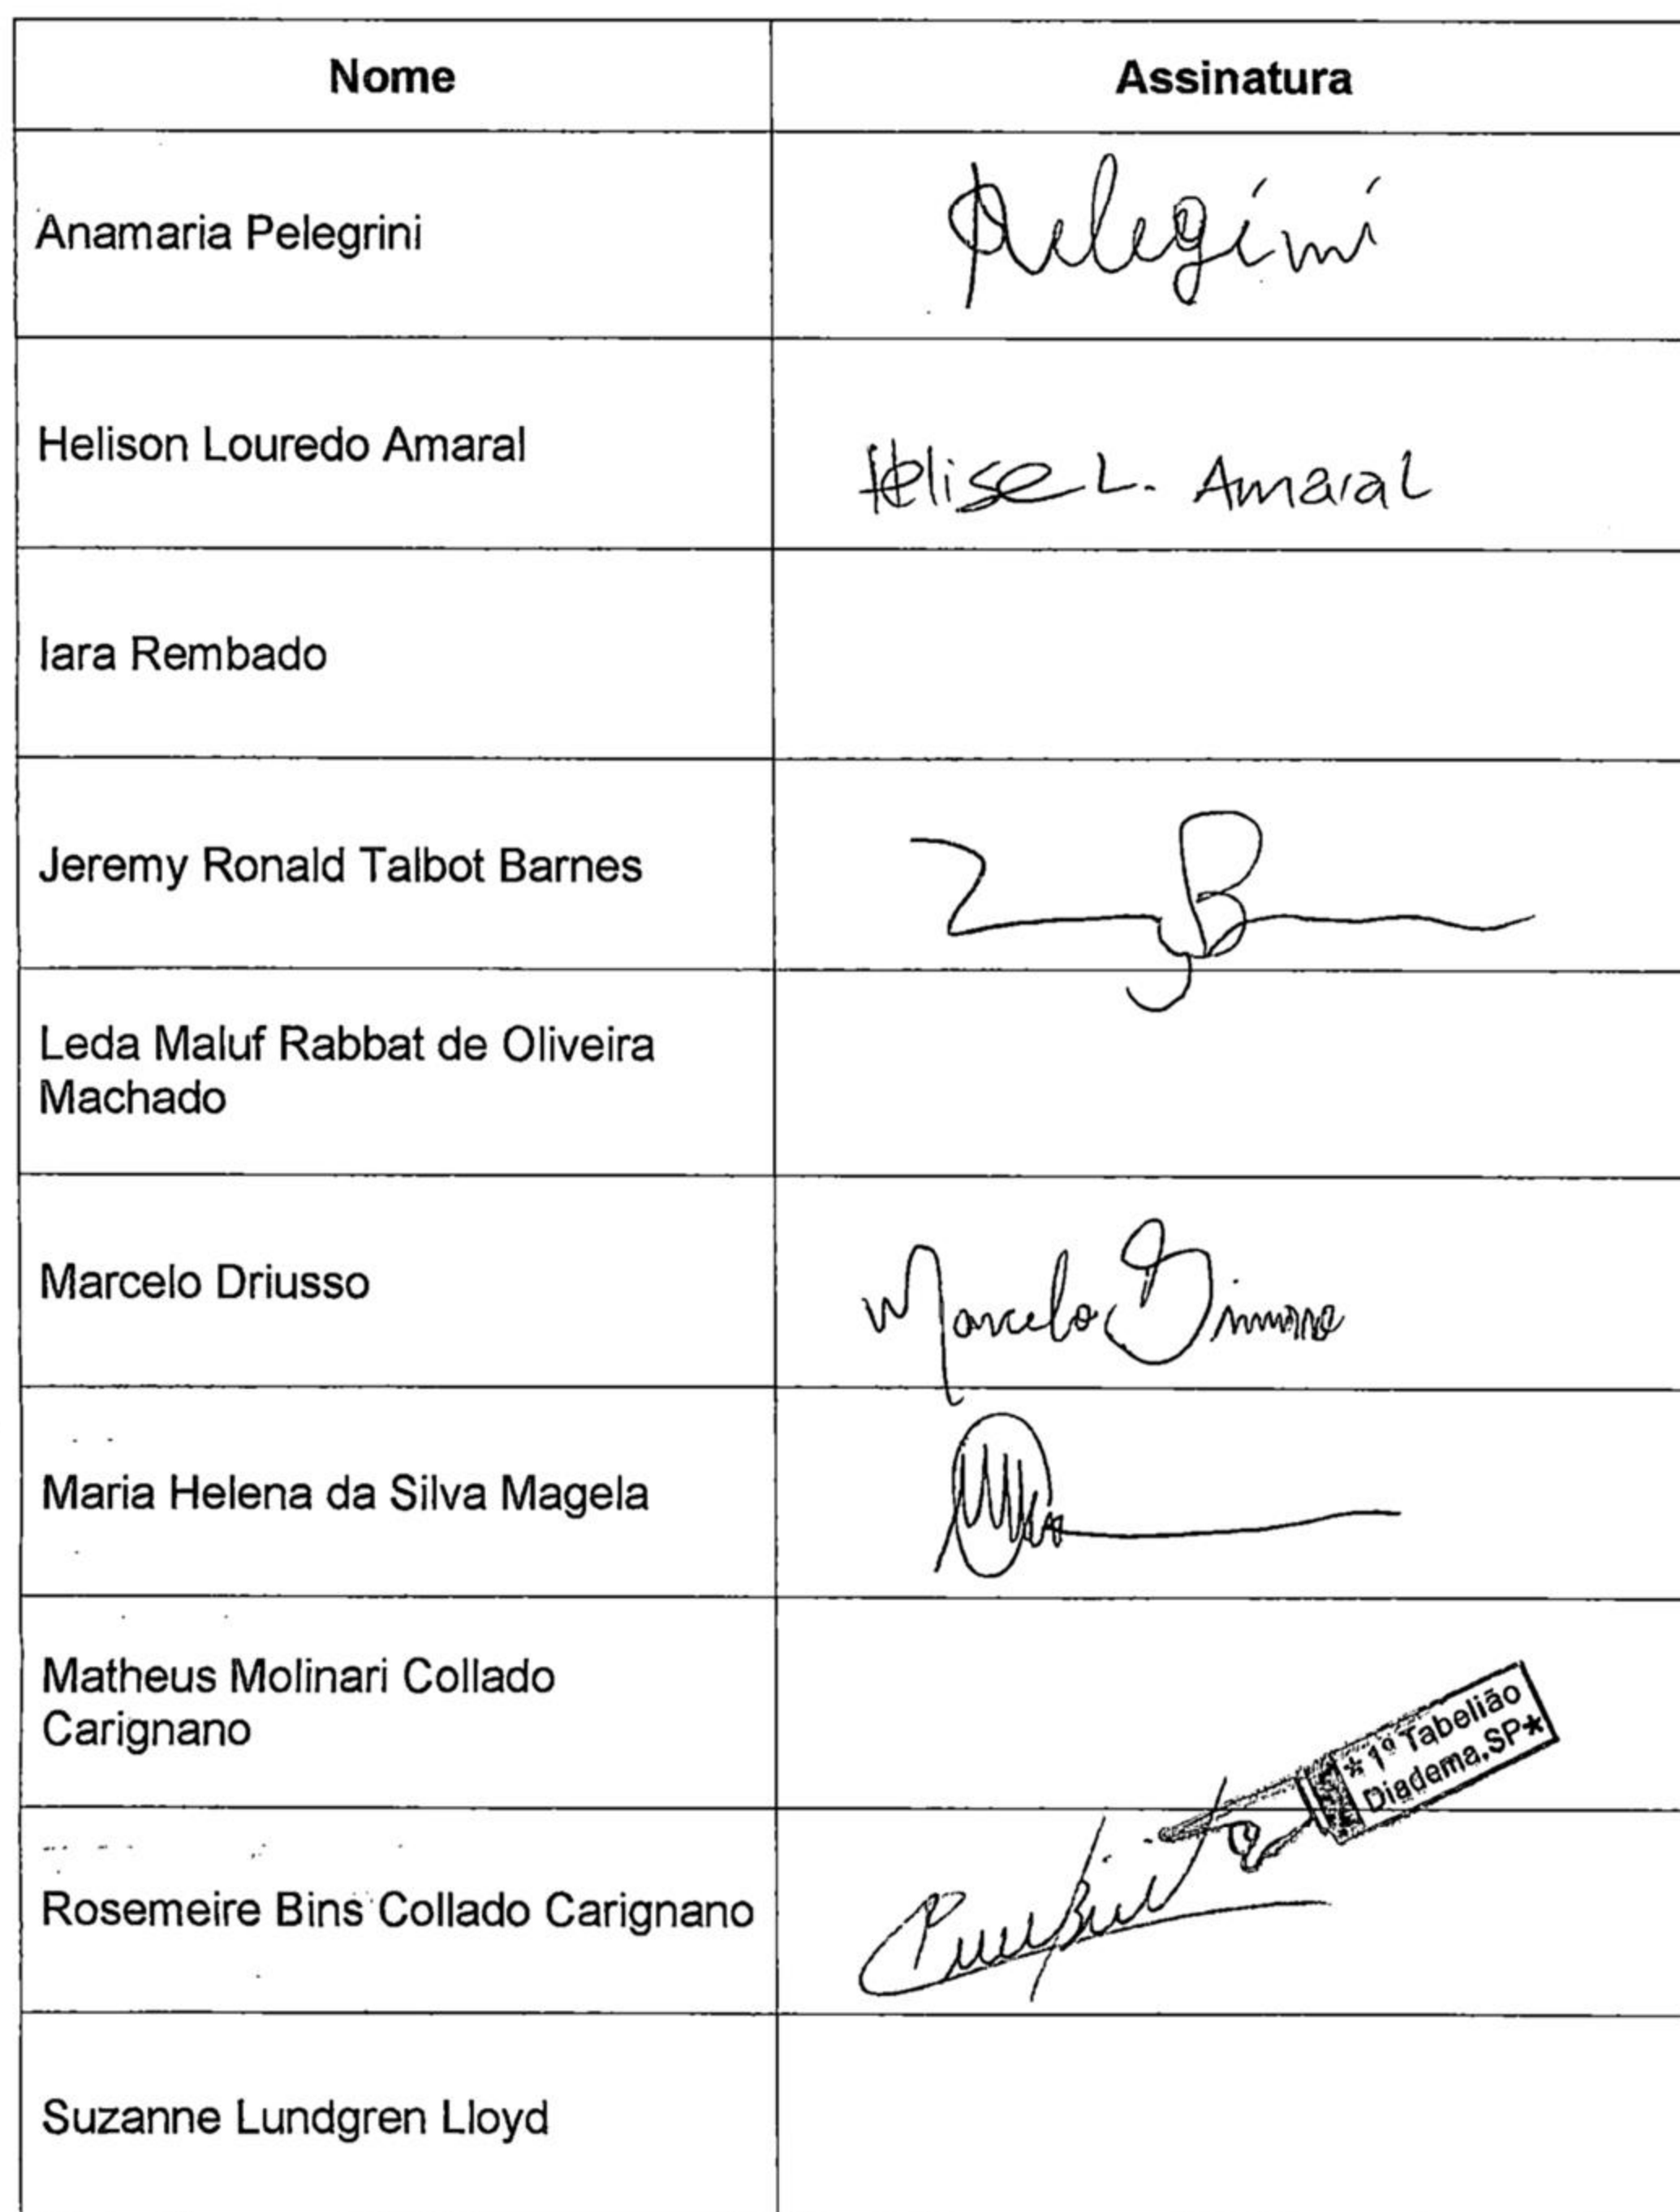 Nome Assinatura
Anamaria Pelegrini Pelegrini
Helison Louredo Amaral Helison L. Amaral
Iara Rembado
Jeremy Ronald Talbot Barnes
Leda Maluf Rabbat de Oliveira
Machado
Marcelo Driusso Marcelo
Maria Helena da Silva Magela
Matheus Molinari Collado
Carignano
*1º Tabelião
Diadema.SP*
Rosemeire Bins Collado Carignano
Suzanne Lundgren Lloyd